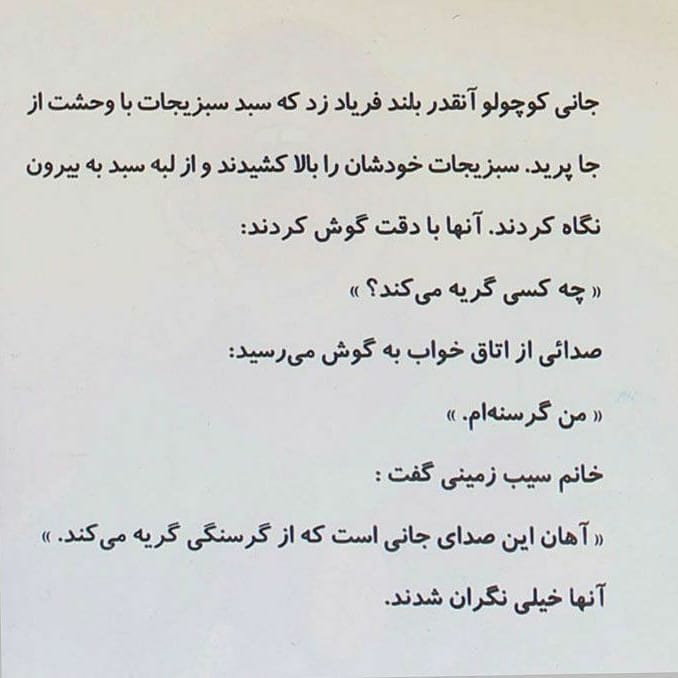 جانی کوچولو آنقدر بلند فریاد زد که سبد سبزیجات با وحشت از
جا پرید. سبزیجات خودشان را بالا کشیدند و از لبه سبد به بیرون
نگاه کردند. آنها با دقت گوش کردند:
« چه کسی گریه می‌کند؟ »
صدائی از اتاق خواب به گوش می‌رسید:
« من گرسنه‌ام. »
خانم سیب زمینی گفت :
« آهان این صدای جانی است که از گرسنگی گریه می‌کند. »
آنها خیلی نگران شدند.